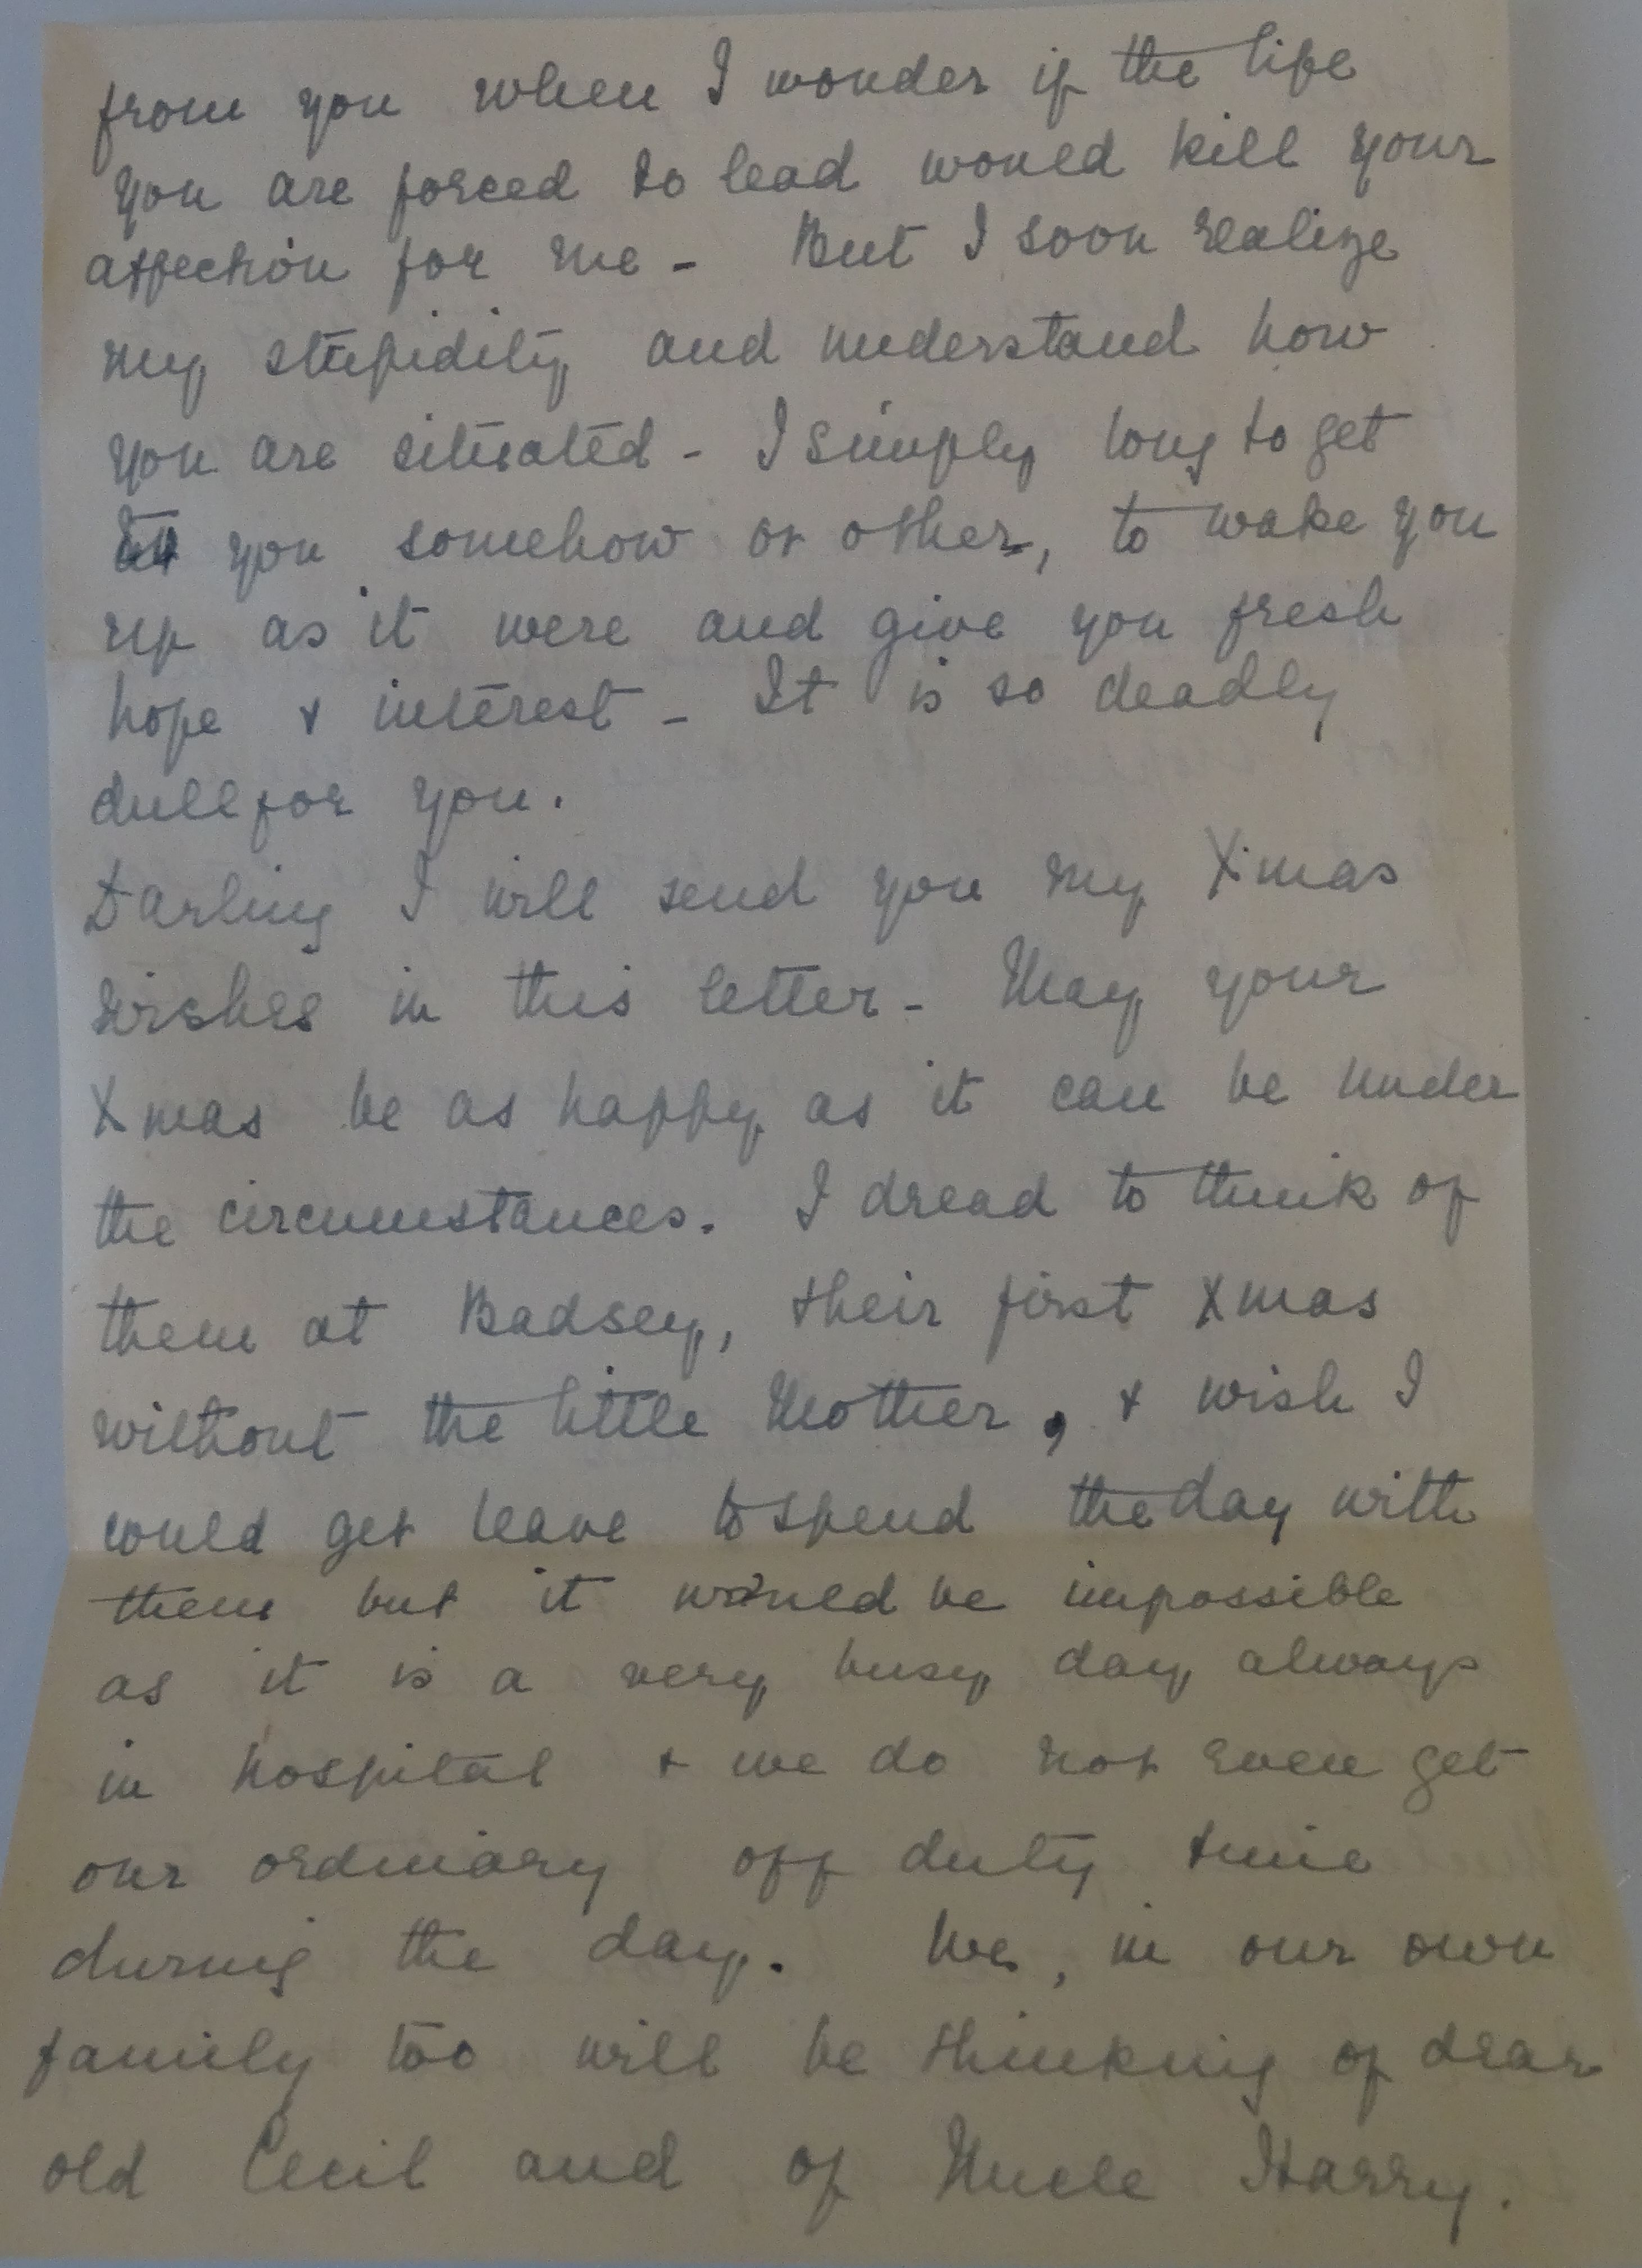 from you when I wonder if the life
you are forced to lead would kill your
affection for me - But I soon realize
my stupidity and understand how
you are situated - I simply long to get
you somehow or other, to wake you
up as it were and give you fresh
hope & interest - It is so deadly
dull for you.
Darling I will send you my Xmas
wishes in this letter - May your
Xmas be as happy as it can be under
the circumstances. I dread to think of
them at Badsey, their first Xmas
without the little Mother, & wish I
could get leave to spend the day with
them but it would be impossible
as it is a very busy day always
in hospital & we do not even get
our ordinary off duty time
during the day. We, in our own
family too will be thinking of dear
old Cecil and of Uncle Harry.